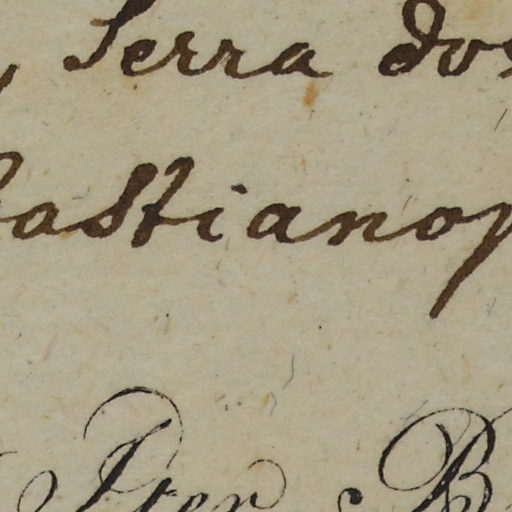 , Serra dos
bastianop
Iter B